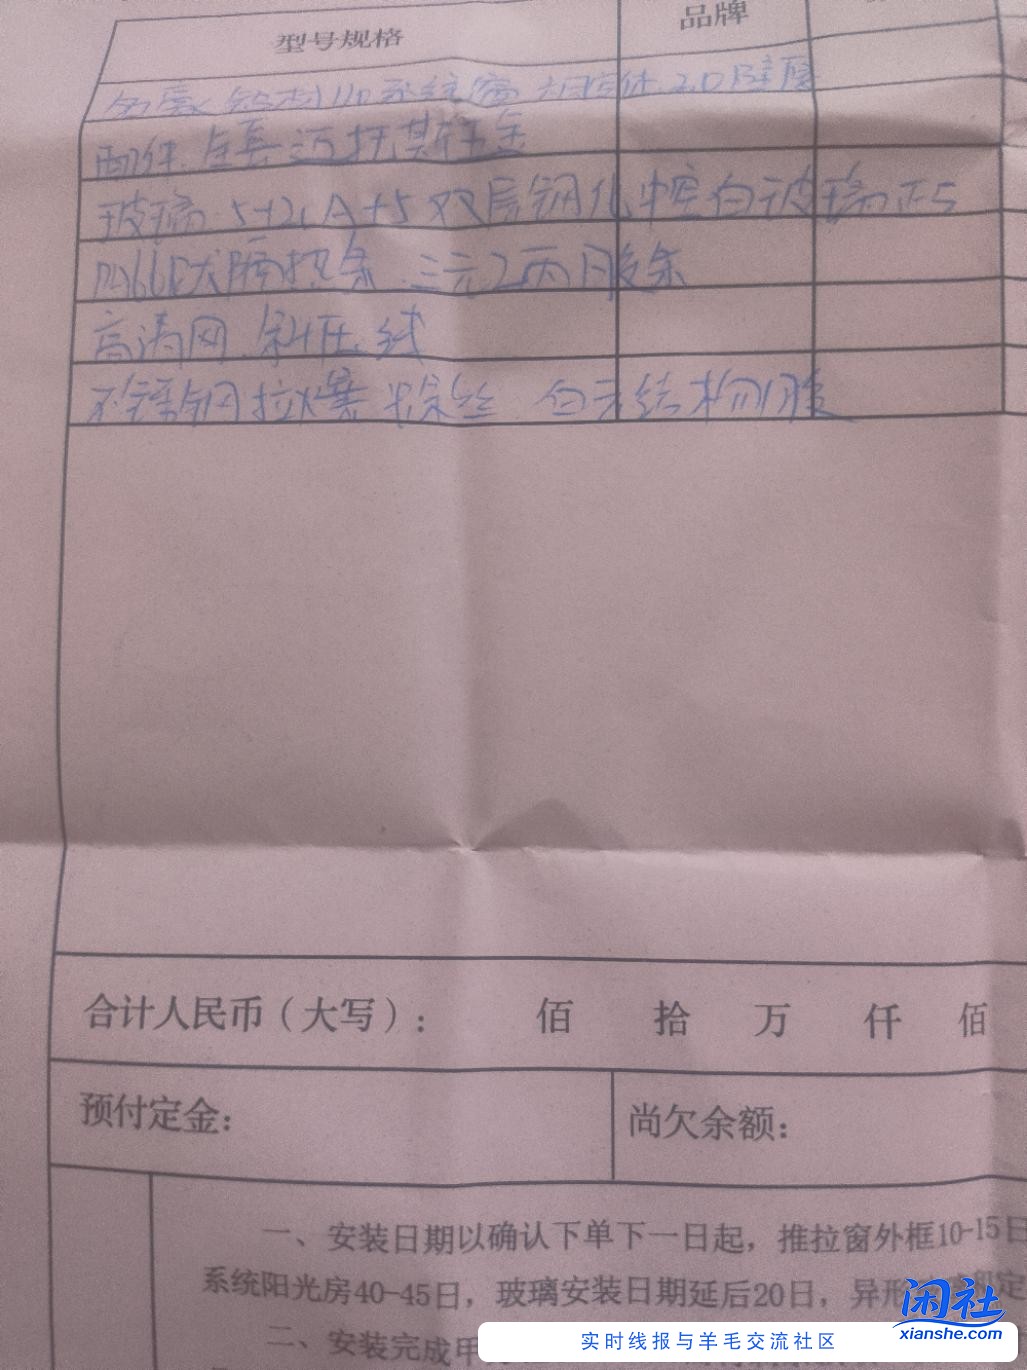 型号规格 品牌
铝材110系统窗 2.0壁厚
配件.全套迈托斯五金
玻璃.5+21A+5双层钢化中空白玻璃正5
PA66尼龙隔热条.三元乙丙胶条
高清网.斜压线
不锈钢拉爆螺丝 白云结构胶
合计人民币(大写): 佰 拾 万 仟 佰
预付定金: 尚欠余额:
一、安装日期以确认下单下一日起,推拉窗外框10-15日
系统阳光房40-45日,玻璃安装日期延后20日,异形 定
二、安装完成甲
闲社
xianshe.com
实时线报与羊毛交流社区